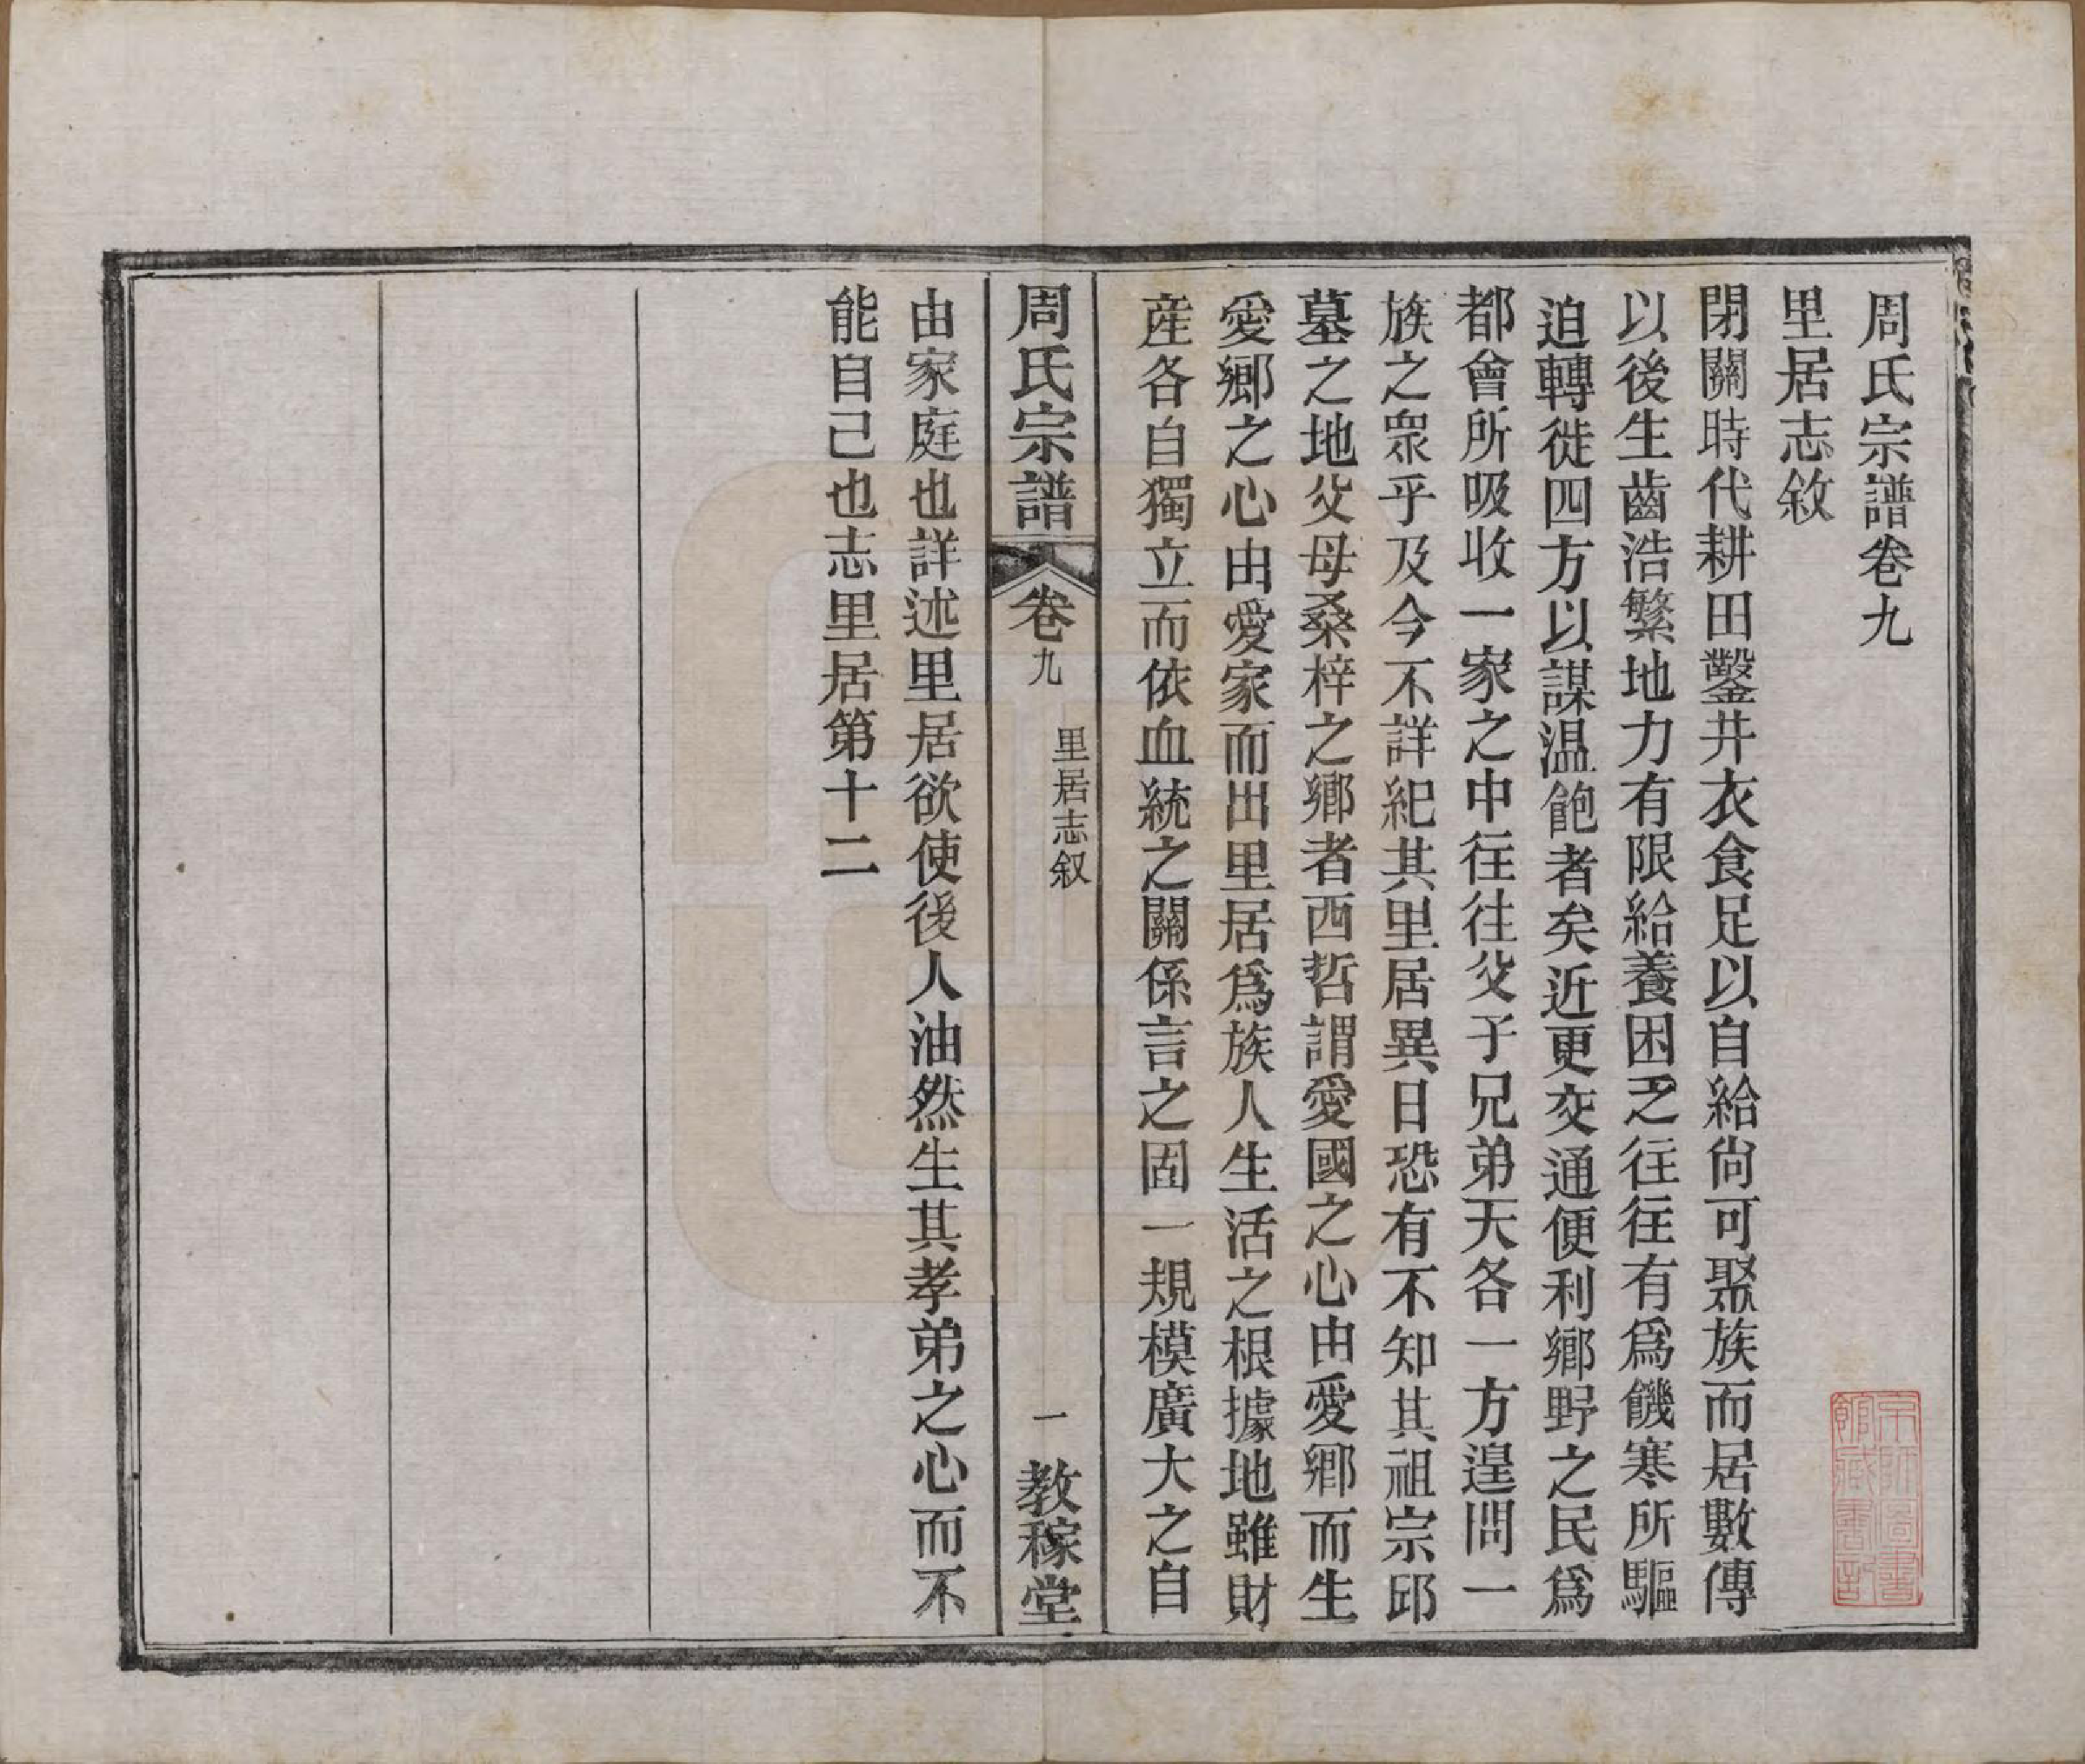 周氏宗譜卷九
里居志敘
閉關時代耕田鑿井衣食足以自給尙可聚族而居數傳
以後生齒浩繁地力有限給養困乏往往有爲饑寒所驅
迫轉徙四方以謀温飽者矣近更交通便利鄉野之民爲
都會所吸收一家之中往往父子兄弟天各一方遑問一
族之眾乎及今不詳紀其里居異日恐有不知其祖宗邱
墓之地父母桑梓之鄉者西哲謂愛國之心由愛鄉而生
愛鄉之心由愛家而出里居爲族人生活之根據地雖財
產各自獨立而依血統之關係言之固一規模廣大之自
周氏宗譜 卷九 里居志叙 一 教稼堂
由家庭也詳述里居欲使後人油然生其孝弟之心而不
能自己也志里居第十二